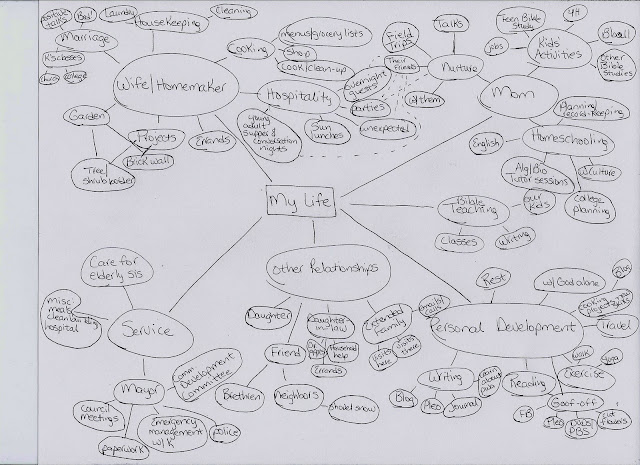 positive talks
Bed!
Laundry
Housekeeping
Cleaning
Marriage
K's cheses
church
college
Wife/Homemaker
Cooking
menus/grocery lists
Shop
Cook/clean-up
Hospitality
overnight guests
parties
unexpected
Sun lunches
young adult supper & conversation nights
Garden
Projects
Errands
Brick wall
Tree/shrub border
Talks
Field Trips
Their Friends
w/them
Nurture
Mom
Teen Bible Study
jobs
4H
Kids' Activities
Bball
Other Bible Studies
Planning record-keeping
Homeschooling
English
Alg/Bio Tutor sessions
College planning
My Life
Bible Teaching
our kids
Classes
Writing
Care for elderly sis
misc: meals
hospital
Service
Mayor
Comm Development Committee
Council meetings
paperwork
Emergency management w/K
police
Other Relationships
Daughter
Daughter-in-law
Household help
Errands
Friend
Brethren
Neighbors
shovel snow
Extended Family
email/calls
visits here
visits there
Personal Development
Rest
w/God alone
Blog
Travel
Writing
Blog
Pleo
Journal
Reading
Exercise
Walk
Yoga
Goof-off
FB
Pleo
DVDs/PBS
Cut flowers